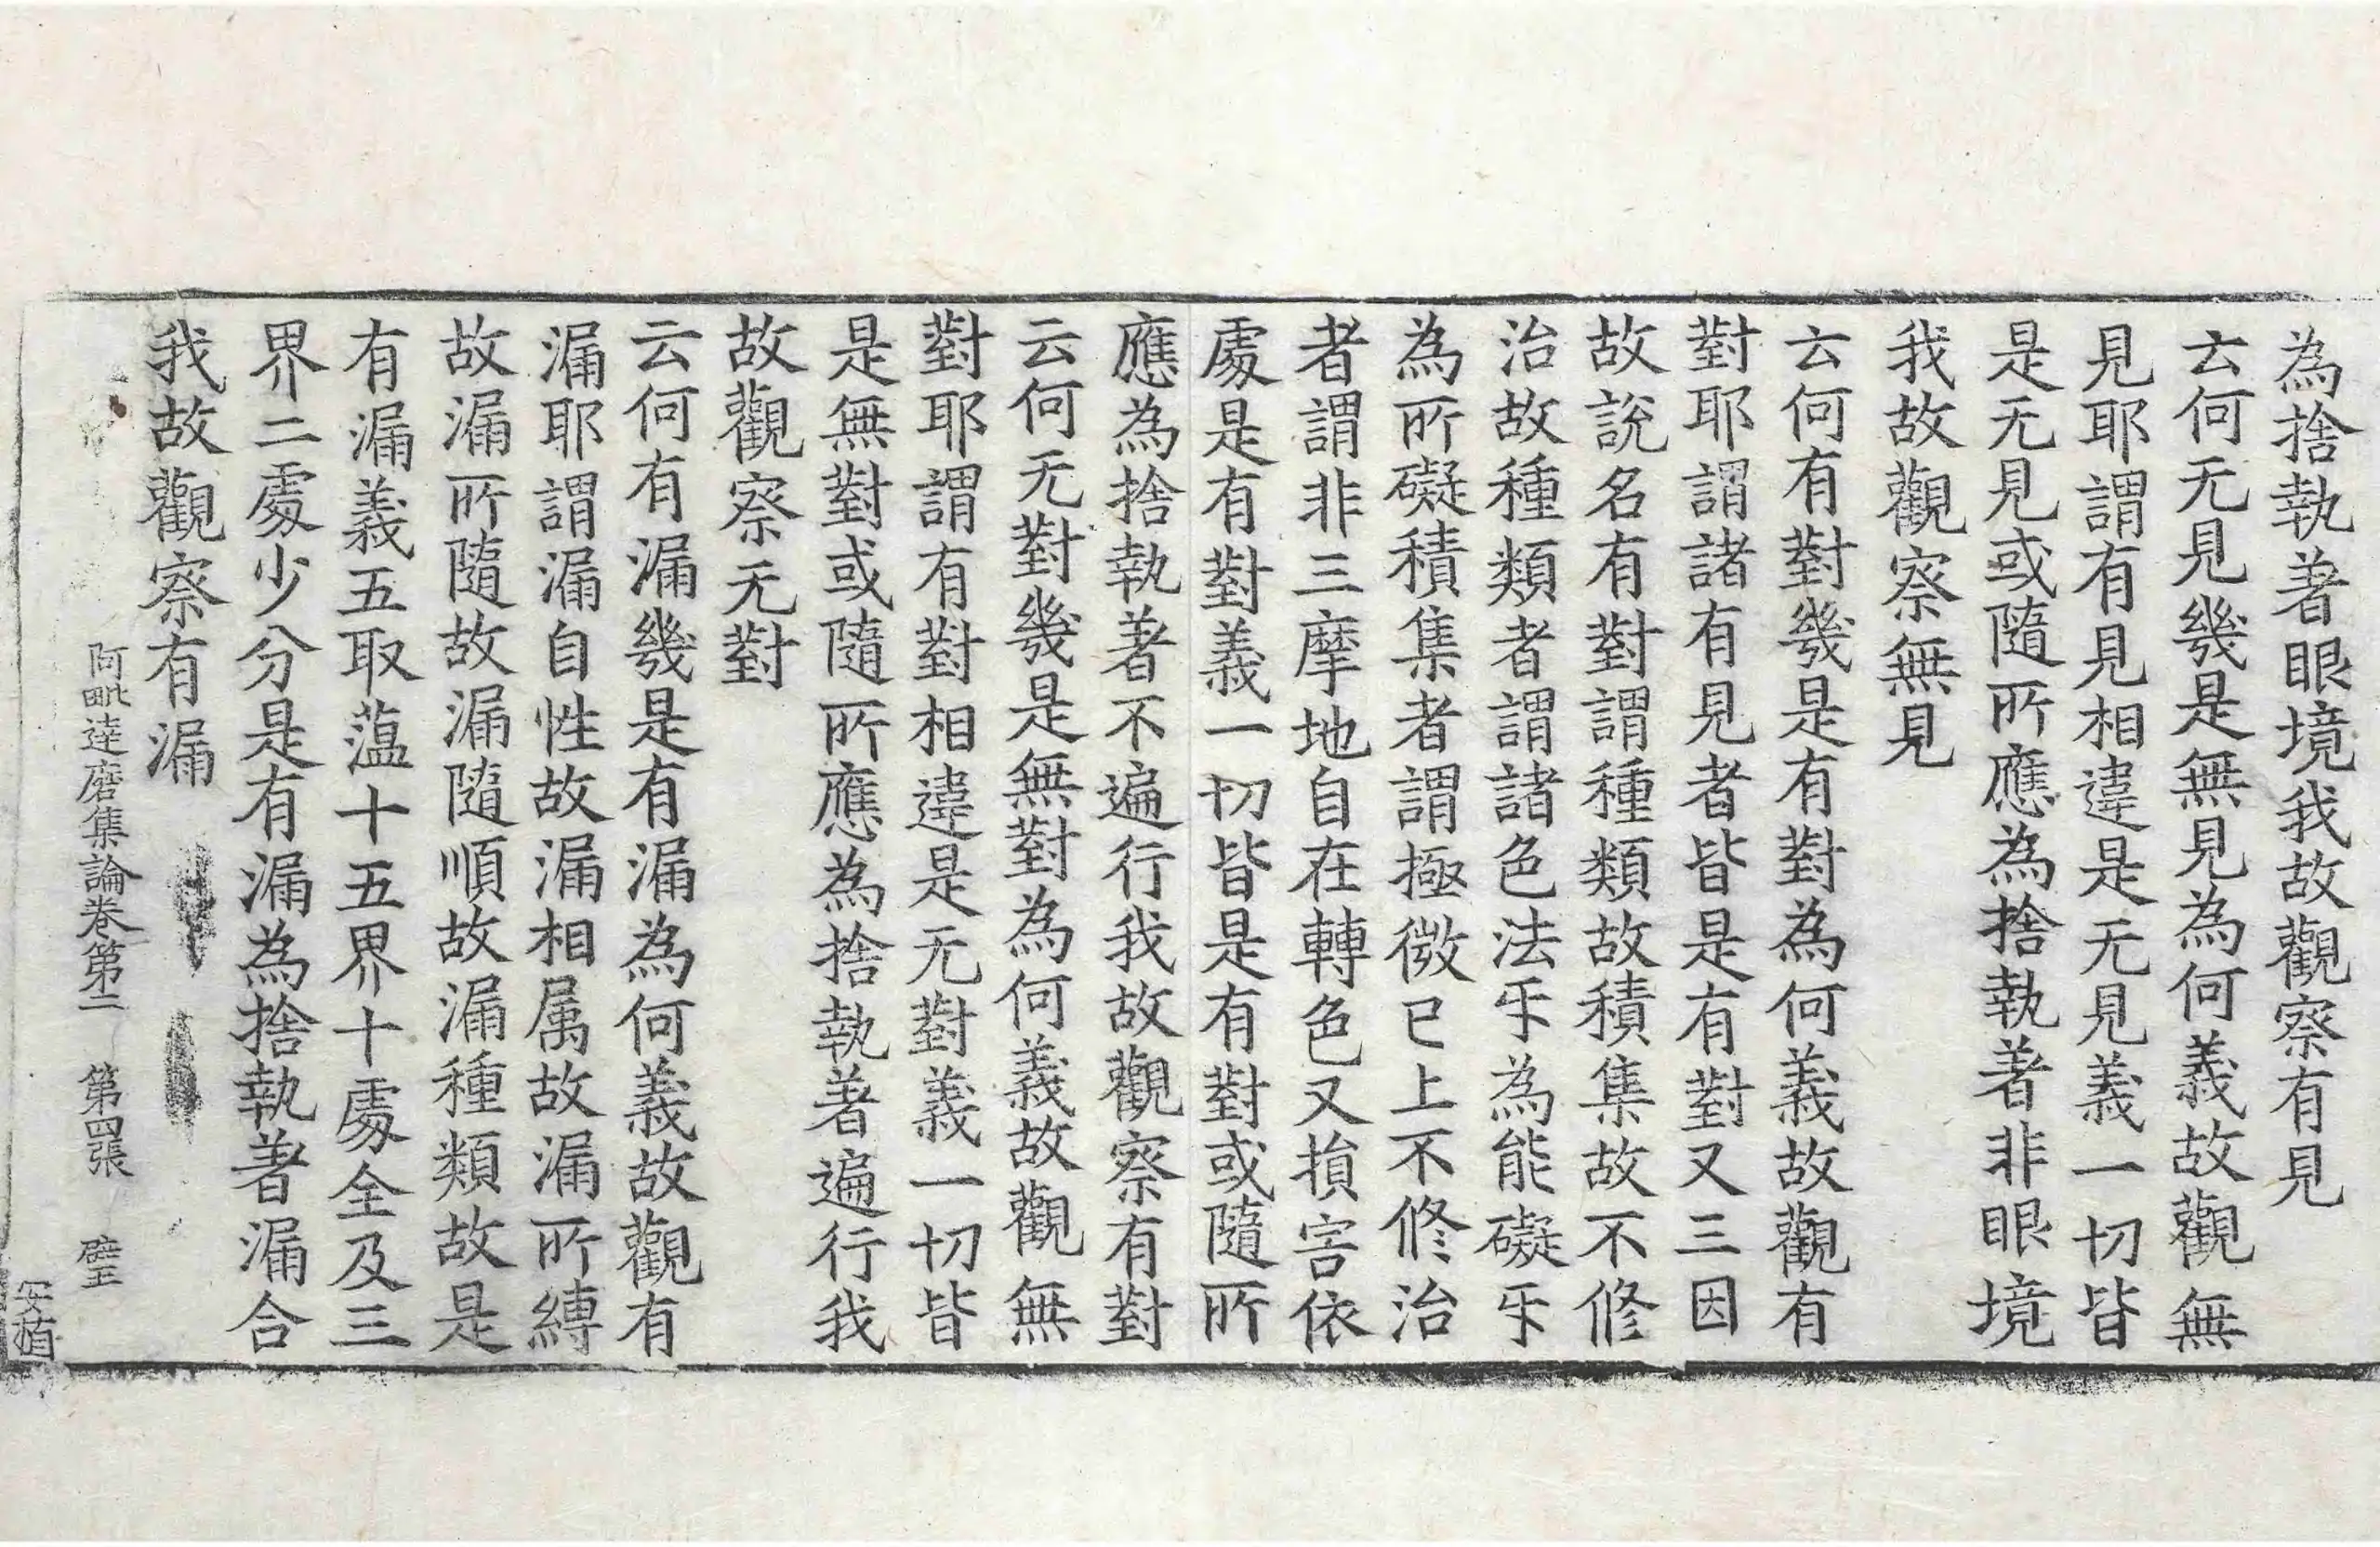 為捨執著眼境我故觀察有見
云何无見幾是無見為何義故觀無
見耶謂有見相違是无見義一切皆
是无見或隨所應為捨執著非眼境
我故觀察無見
云何有對幾是有對為何義故觀有
對耶謂諸有見者皆是有對又三因
故說名有對謂種類故積集故不修
治故種類者謂諸色法㸦為能礙㸦
為所礙積集者謂極微已上不修治
者謂非三摩地自在轉色又損害依
處是有對義一切皆是有對或隨所
應為捨執著不遍行我故觀察有對
云何无對幾是無對為何義故觀無
對耶謂有對相違是无對義一切皆
是無對或隨所應為捨執著遍行我
故觀察无對
云何有漏幾是有漏為何義故觀有
漏耶謂漏自性故漏相属故漏所縛
故漏所隨故漏隨順故漏種類故是
有漏義五取蕰十五界十處全及三
界二處少分是有漏為捨執著漏合
我故觀察有漏
阿毗達磨集論卷第二 第四張 璧